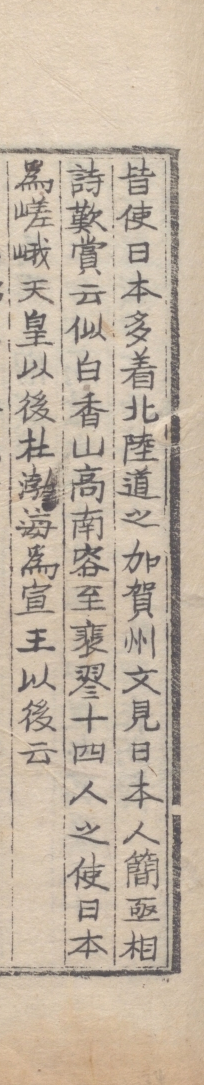 皆使日本多着北陸道之加賀州文見日本人簡亟相
詩歎賞云似白香山高南容至裴璆十四人之使日本
爲嵯峨天皇以後杜渤海爲宣王以後云